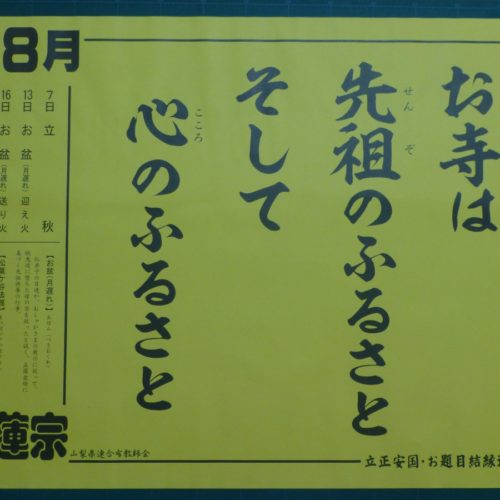 お寺は
先祖のふるさと
せんぞ
そして
心のふるさと
こころ
8月
7日 立秋
13日 お盆(月遅れ)迎え火
16日 お盆(月遅れ)送り火
【お盆(月遅れ)】
蓮宗
山梨県連合布教師会
立正安国・お題目結縁